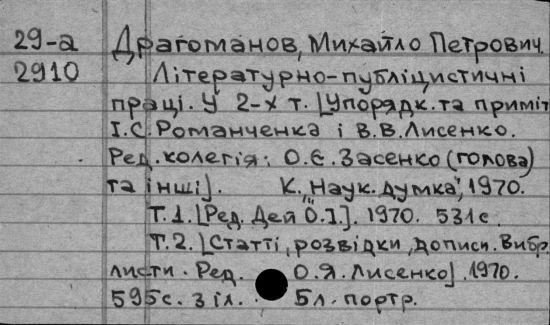 29-а Драгоманов, Михайло Петрович.
2910 Літературно-публіцистичні
праці. У 2-х т. [Упорядк. та приміт
І.С. Романченка і В.В. Лисенко.
Ред. колегія: О.Є. Засенко (голова)
та інші]. К., "Наук. думка", 1970.
Т.1. [Ред. Дей О.І]. 1970. 531с.
Т.2. [Статті, розвідки, дописи. Вибр
листи. Ред. О.Я. Лисенко]. 1970.
595с. з іл. 5л. портр.